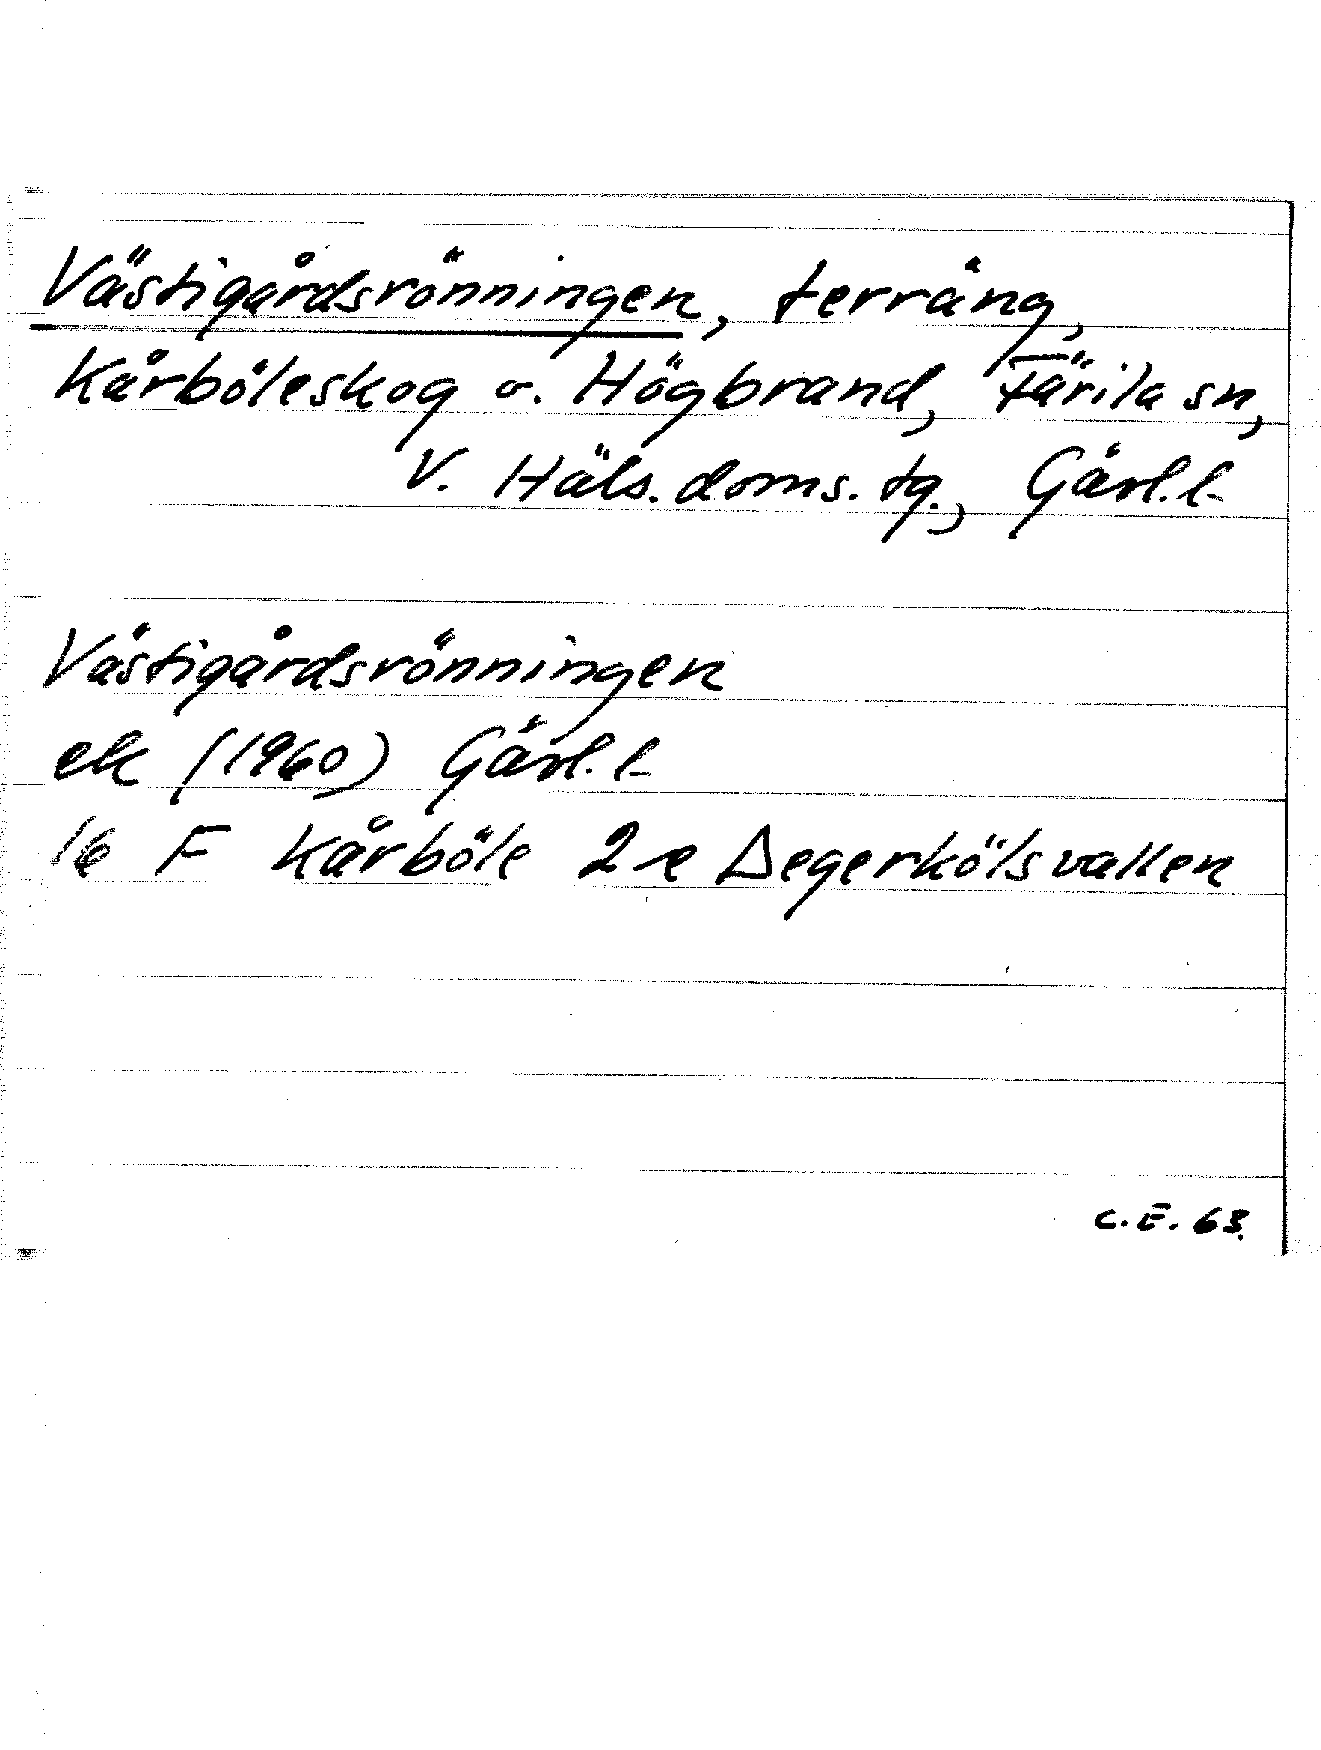 Västigårdsrönningen, terräng,
Kårböleskog o. Högbrand, Färila sn,
V. Häls. doms. tg., Gävl. l.
Västigårdsrönningen
ek (1960) Gävl. l.
16 F Kårböle 2 e Degerkölsvallen
C. E. 63.